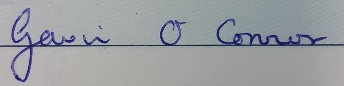 Gavin O Connor